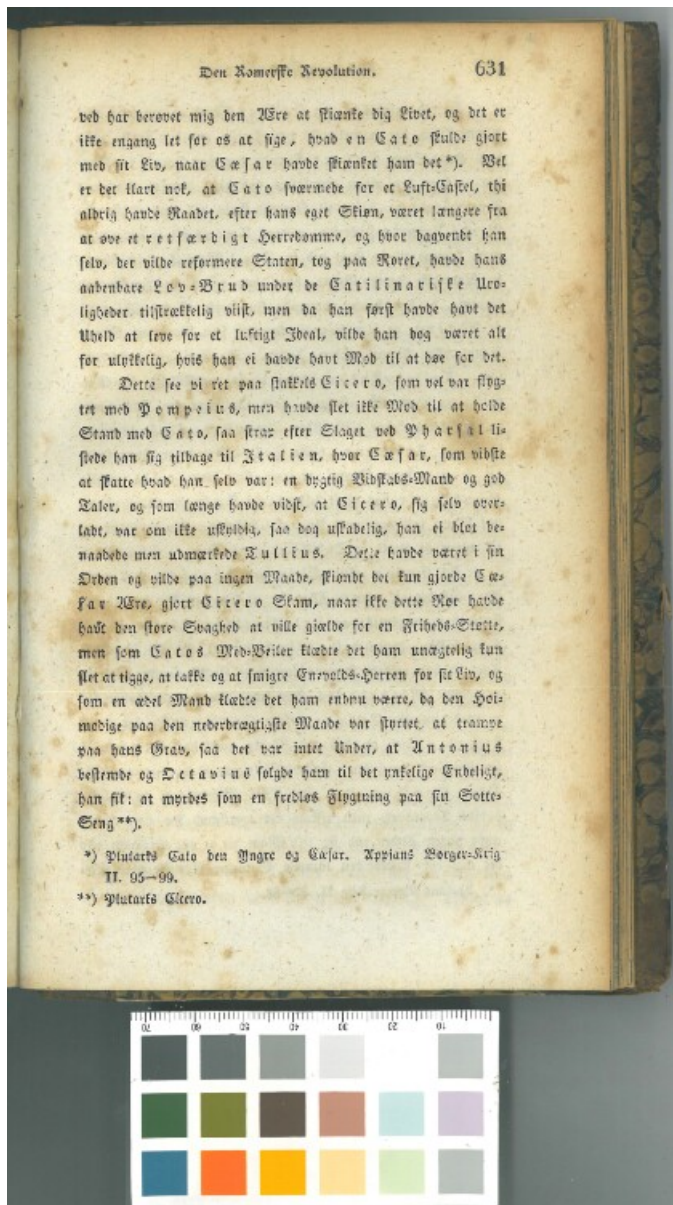 Den Romerske Revolution. 631
ved har berøvet mig den Ære at skiænke dig Livet, og det er
ikke engang let for os at sige, hvad en Cato skulde gjort
med sit Liv, naar Cæsar havde skiænket ham det*). Vel
er det klart nok, at Cato sværmede for et Luft-Castel, thi
aldrig havde Raadet, efter hans eget Skiøn, været længere fra
at øve et retfærdigt Herredømme, og hvor bagvendt han
selv, der vilde reformere Staten, tog paa Roret, havde hans
aabenbare Lov-Brud under de Catilinariske Uro-
ligheder tilstrækkelig viist, men da han først havde havt det
Uheld at leve for et luftigt Ideal, vilde han dog været alt
for ulykkelig, hvis han ei havde havt Mod til at døe for det.
Dette see vi ret paa stakkels Cicero, som vel var flyg-
tet med Pompeius, men havde slet ikke Mod til at holde
Stand med Cato, saa strax efter Slaget ved Pharsal li-
stede han sig tilbage til Italien, hvor Cæsar, som vidste
at skatte hvad han selv var: en dygtig Vidskabs-Mand og god
Taler, og som længe havde vidst, at Cicero, sig selv over-
ladt, var om ikke uskyldig, saa dog uskadelig, han ei blot be-
naadede men udmærkede Tullius. Dette havde været i sin
Orden og vilde paa ingen Maade, skiøndt det kun gjorde Cæ-
sar Ære, gjort Cicero Skam, naar ikke dette Rør havde
havt den store Svaghed at ville giælde for en Friheds-Støtte,
men som Catos Med-Beiler klædte det ham unægtelig kun
slet at tigge, at takke og at smigre Enevolds-Herren for sit Liv, og
som en ædel Mand klædte det ham endnu værre, da den Høi-
modige paa den nederdrægtigste Maade var styrtet, at trampe
paa hans Grav, saa det var intet Under, at Antonius
bestemde og Octavius følgde ham til det ynkelige Endeligt,
han fik: at myrdes som en fredløs Flygtning paa sin Sotte-
Seng**).
*) Plutarks Cato den Yngre og Cæsar. Appians Borger-Krig
II. 95—99.
**) Plutarks Cicero.
70 60 50 40 30 20 10